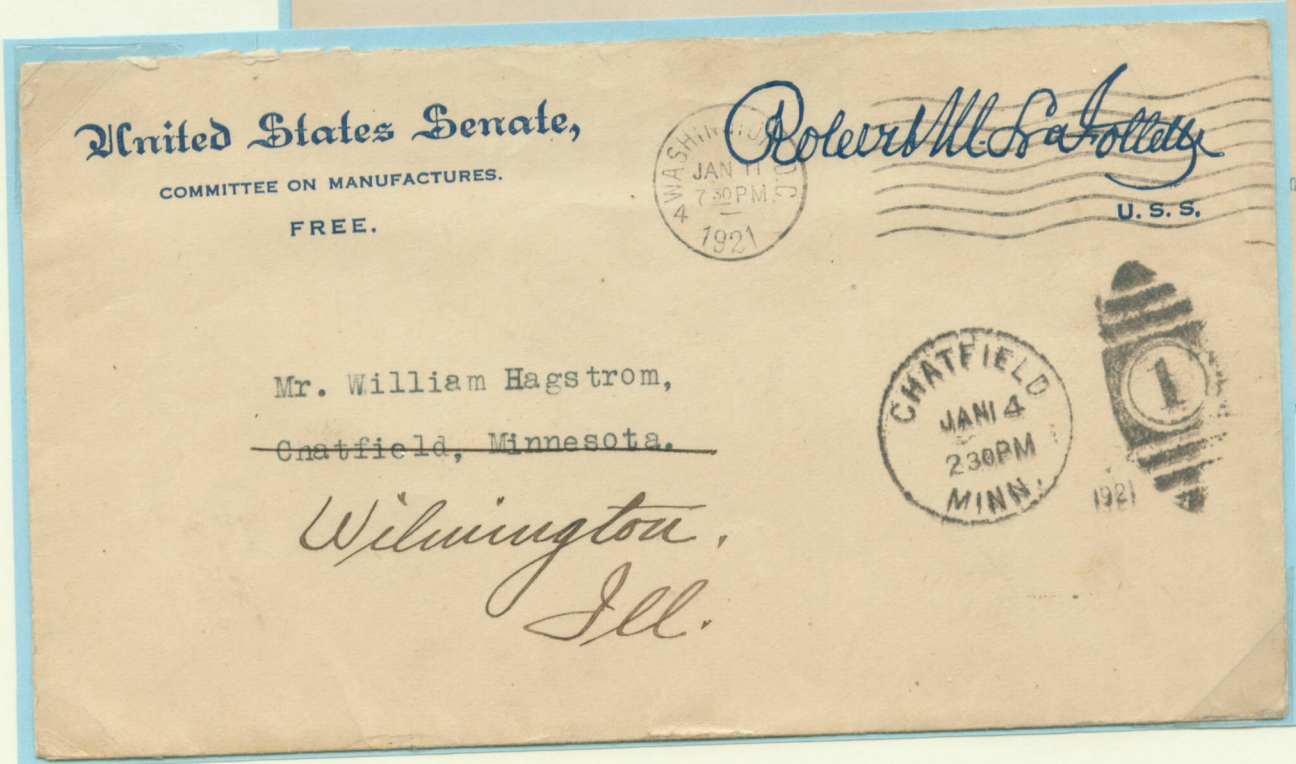 United States Senate,
COMMITTEE ON MANUFACTURES.
FREE.
WASHINGTON D.C.
JAN 11
7 30 PM.
4
1921
Robert M. La Follette
U. S. S.
Mr. William Hagstrom,
Chatfield, Minnesota.
Wilmington.
Ill.
CHATFIELD
JAN 14
2 30 PM
MINN.
1
1921